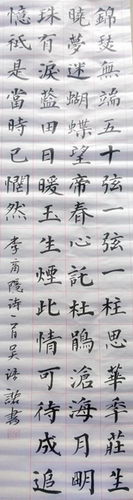 錦瑟無端五十弦一弦一柱思華年莊生
曉夢迷蝴蝶望帝春心託杜鵑滄海月明
珠有淚藍田日暖玉生煙此情可待成追
憶祇是當時已惘然
李商隱诗一首吴書